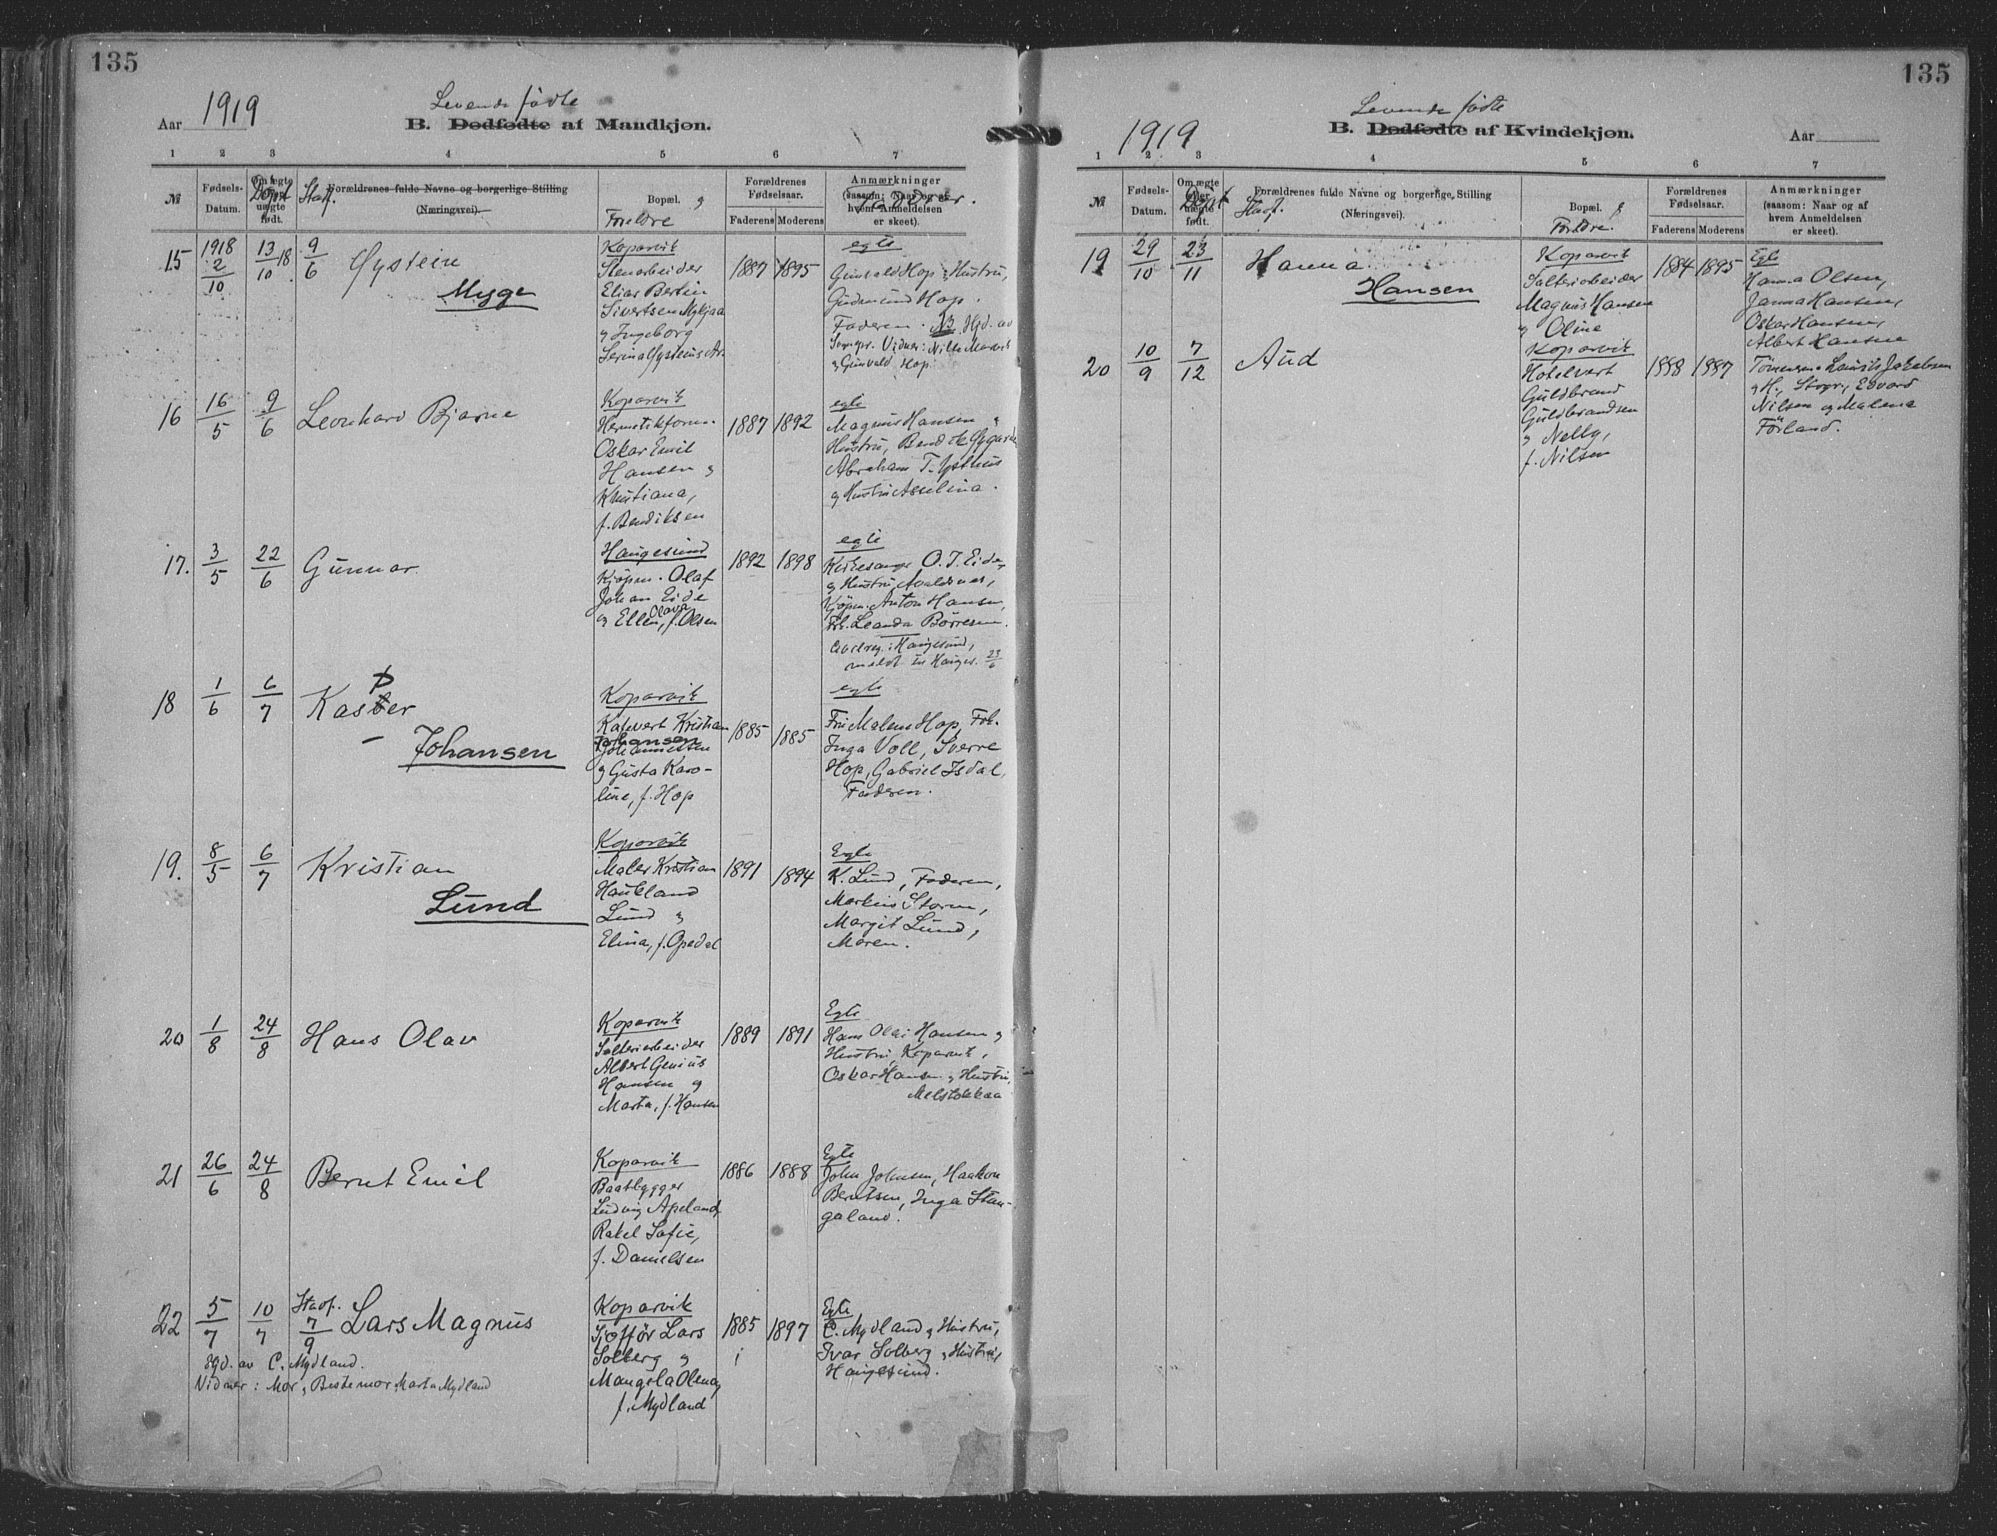 135
Aar 1919
Levende fødte
B. Dødfødte af Mandkjøn.
1 2 3 4 5 6 7
№
Fødsels-Datum.
Om ægte eller uægte født.
Døpt
Stadf.
Forældrenes fulde Navne og borgerlige Stilling
(Næringsvei).
Bopæl. og
Foreldre
Forældrenes Fødselsaar.
Faderens Moderens
Anmærkninger
(saasom: Naar og af
hvem Anmeldelsen
er skeet).
Faddere.
15 1918 2/10 13/10 18 9/6 Øystein
Myge
Kopervik
Stenarbeider
Elias Bertin
Sivertsen Myljaa
og Ingeborg
1887 1895
egte
Gunvald Hop og Hustru,
Gudmund Hop.
Faderen. NB. Hjd. av
Sognepr. Vidner:
og Gunvald Hop.
16 16/5 9/6 Leonhard Bjarne
Kopervik
Hermetikform.
Oskar Emil
Hansen og
Kristiana,
f. Bendiksen
1887 1892
egte
Magnus Hansen og
Hustru, Bendik
Abraham T. Ysthus
og Hustru Asselina.
17. 3/5 22/6 Gunnar.
Haugesund
Kjøpm. Olaf
Johan Eide
og Ellen Olava, f. Olsen
1892 1898
egte
Kirkesanger O. J. Eide,
og Hustru Avaldsnes,
Kjøpm. Anton Hansen,
Frk. Leanda Børresen.
Civilreg. i Haugesund,
meldt til Hauges. 23/6
18 1/6 6/7 Kasper
Johansen
Kopervik
Kafevert Kristian
Johansen
Johannessen
og Gusta Karo-
line, f. Hop
1885 1885
egte
Fru Malene Hop, Frk.
Inga Voll, Sverre
Hop, Gabriel Isdal,
Faderen.
19. 8/5 6/7 Kristian
Lund
Kopervik
Maler Kristian
Haukland
Lund og
Elina, f. Opedal
1891 1894
Egte
K. Lund, Faderen,
Markus Storm,
Margit Lund,
Moren.
20 1/8 24/8 Hans Olav
Kopervik
Salteriarbeider
Albert Genius
Hansen og
Marta, f. Hansen
1889 1891
Egte
Hans Olai Hansen og
Hustru, Kopervik,
Oskar Hansen og Hustru,
Melstokkaa
21 26/6 24/8 Bernt Emil
Kopervik
Baatbygger
Ludvig Apeland,
Rakel Sofie,
f. Danielsen
1886 1888
Egte
John Johnsen, Haakon
Berntsen, Inga Stan-
galand.
22 5/7 10/7 Stadf. 7/9 Lars Magnus
Hjd. av C. Mydland.
Vidner: Mor og Bestemor Marta Mydland
Kopervik
Sjoffør Lars
Solberg og
Mangela Olena,
f. Mydland
1885 1897
Egte
C. Mydland og Hustru,
Ivar Solberg og Hustru,
Haugesund.
135
1919
Levende fødte
B. Dødfødte af Kvindekjøn.
Aar
1 2 3 4 5 6 7
№
Fødsels-Datum.
Om ægte eller uægte født.
Døpt
Stadf.
Forældrenes fulde Navne og borgerlige Stilling
(Næringsvei).
Bopæl. og
Foreldre.
Forældrenes Fødselsaar.
Faderens Moderens
Anmærkninger
(saasom: Naar og af
hvem Anmeldelsen
er skeet).
19 29/10 23/11 Hanna
Hansen
Kopervik
Salteriarbeider
Magnus Hansen
og Oline
1884 1895
Egte
Hanna Olsen,
Janna Hansen,
Oskar Hansen,
Albert Hansen
20 10/9 7/12 Aud
Kopervik
Hotelvert
Guldbrand
Guldbrandsen
og Nelly,
f. Nilsen
1888 1887
Lauits Jakobsen
og H., Stopr. Edvard
Nilsen og Malena
Førland.